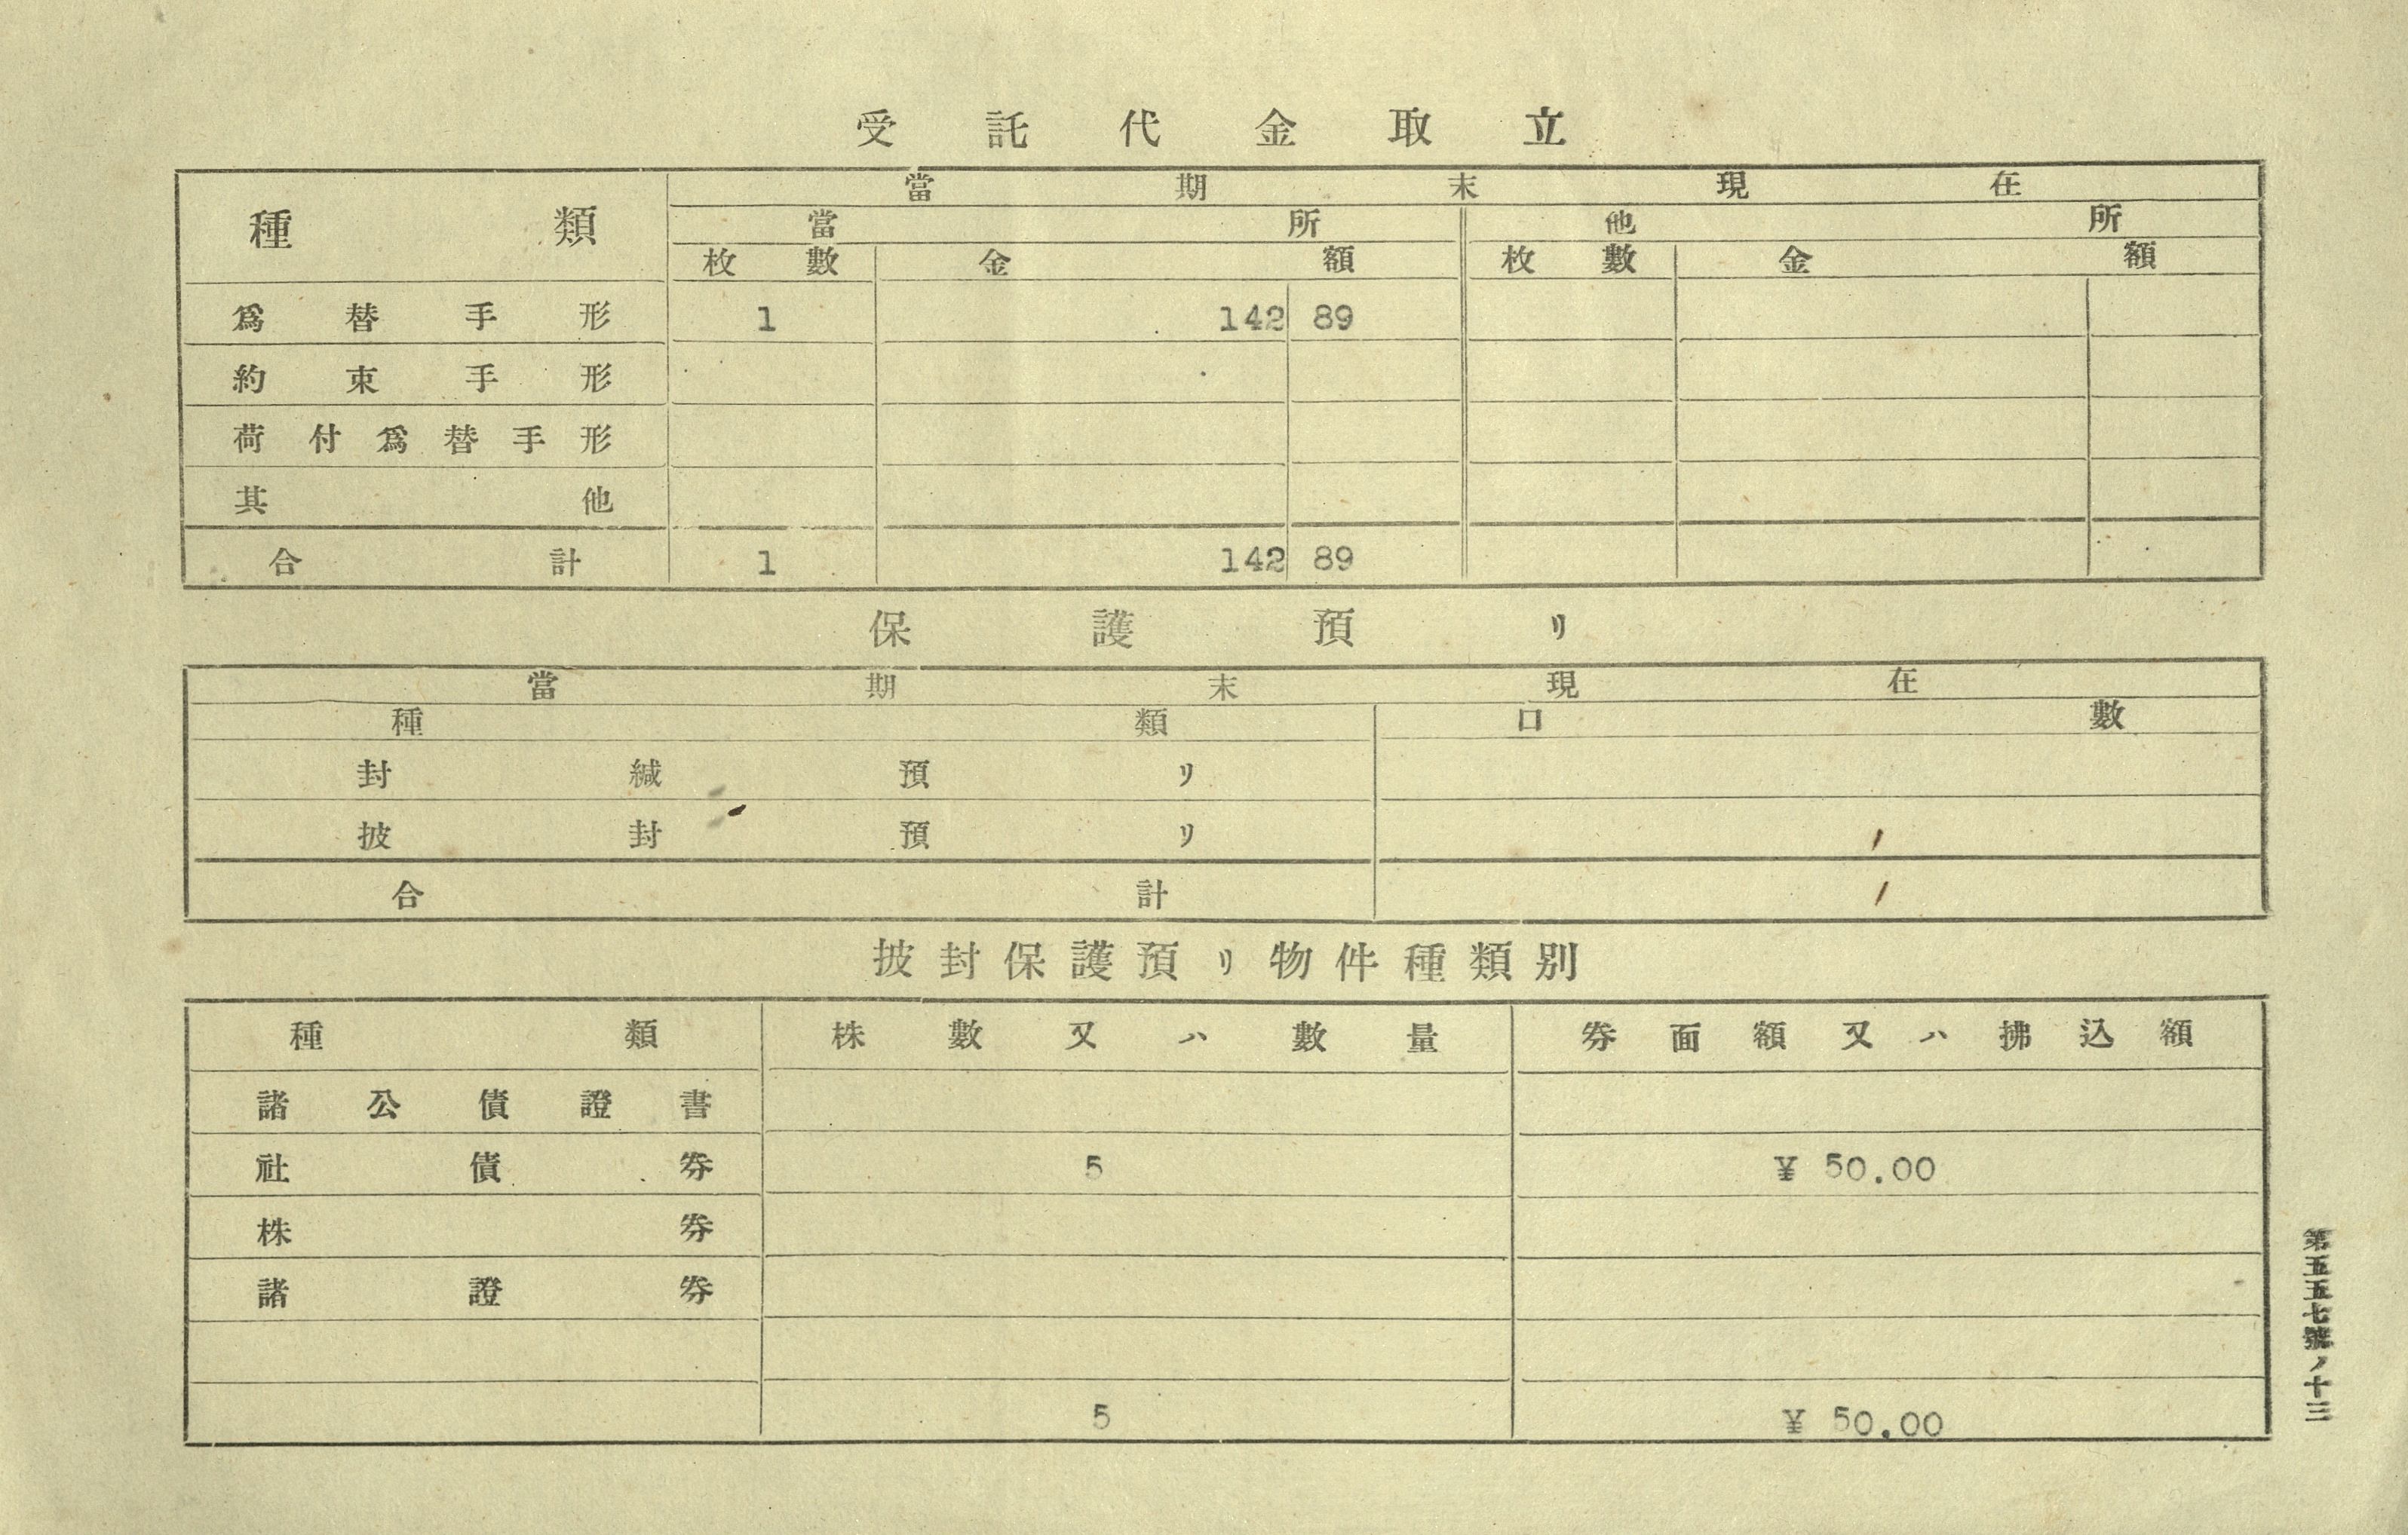 受託代金取立
種類 當期末現在
當所 他所
枚數 金額 枚數 金額
爲替手形 1 142 89
約束手形
荷付爲替手形
其他
合計 1 142 89
保護預リ
當期末現在
種類 口數
封緘預リ
披封預リ 1
合計 1
披封保護預リ物件種類別
種類 株數又ハ數量 券面額又ハ拂込額
諸公債證書
社債券 5 ¥ 50.00
株券
諸證券
5 ¥ 50.00
第五五七號ノ十三